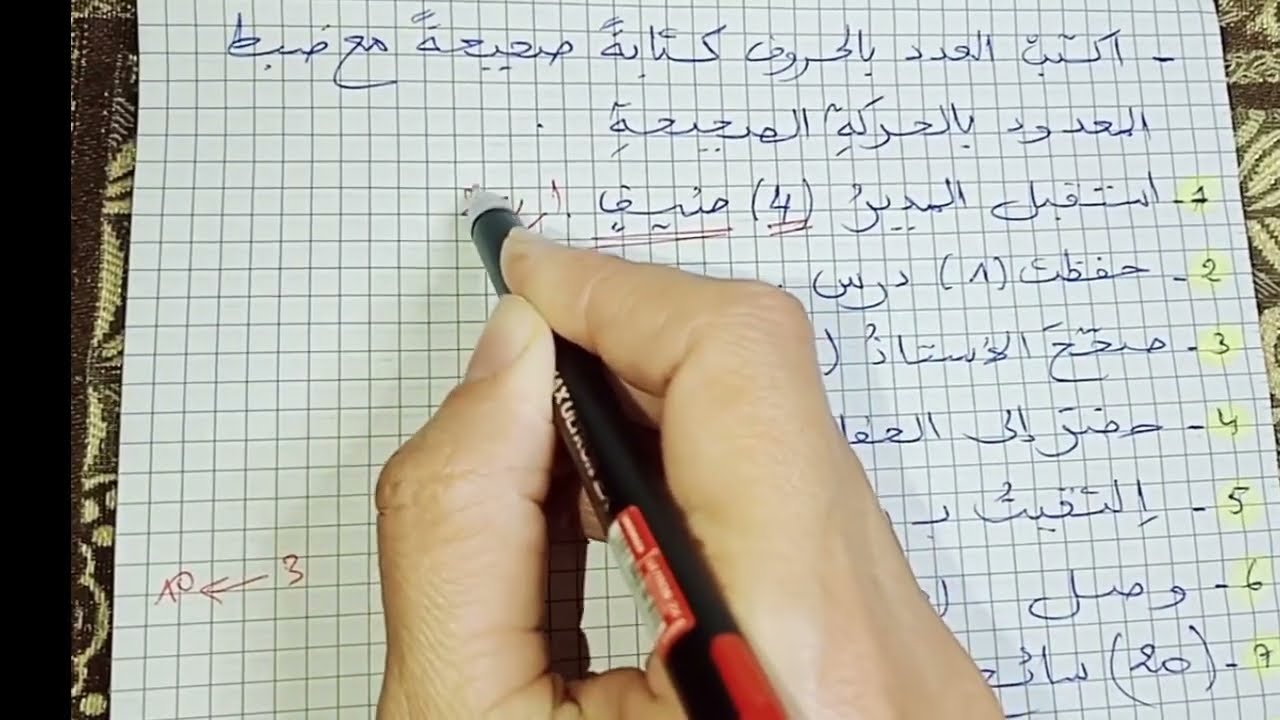 - اكتب العدد بالحروف كتابةً صحيحةً مع ضبط
المعدود بالحركةِ الصحيحةِ .
1- استقبل المديرُ (4) ضيفٍ .
2- حفظت (1) درس .
3- صحّحَ الأستاذُ (
4- حضر إلى
5- اِلتقيتُ بـ
6- وصل (
7- (20)
3 ← 10